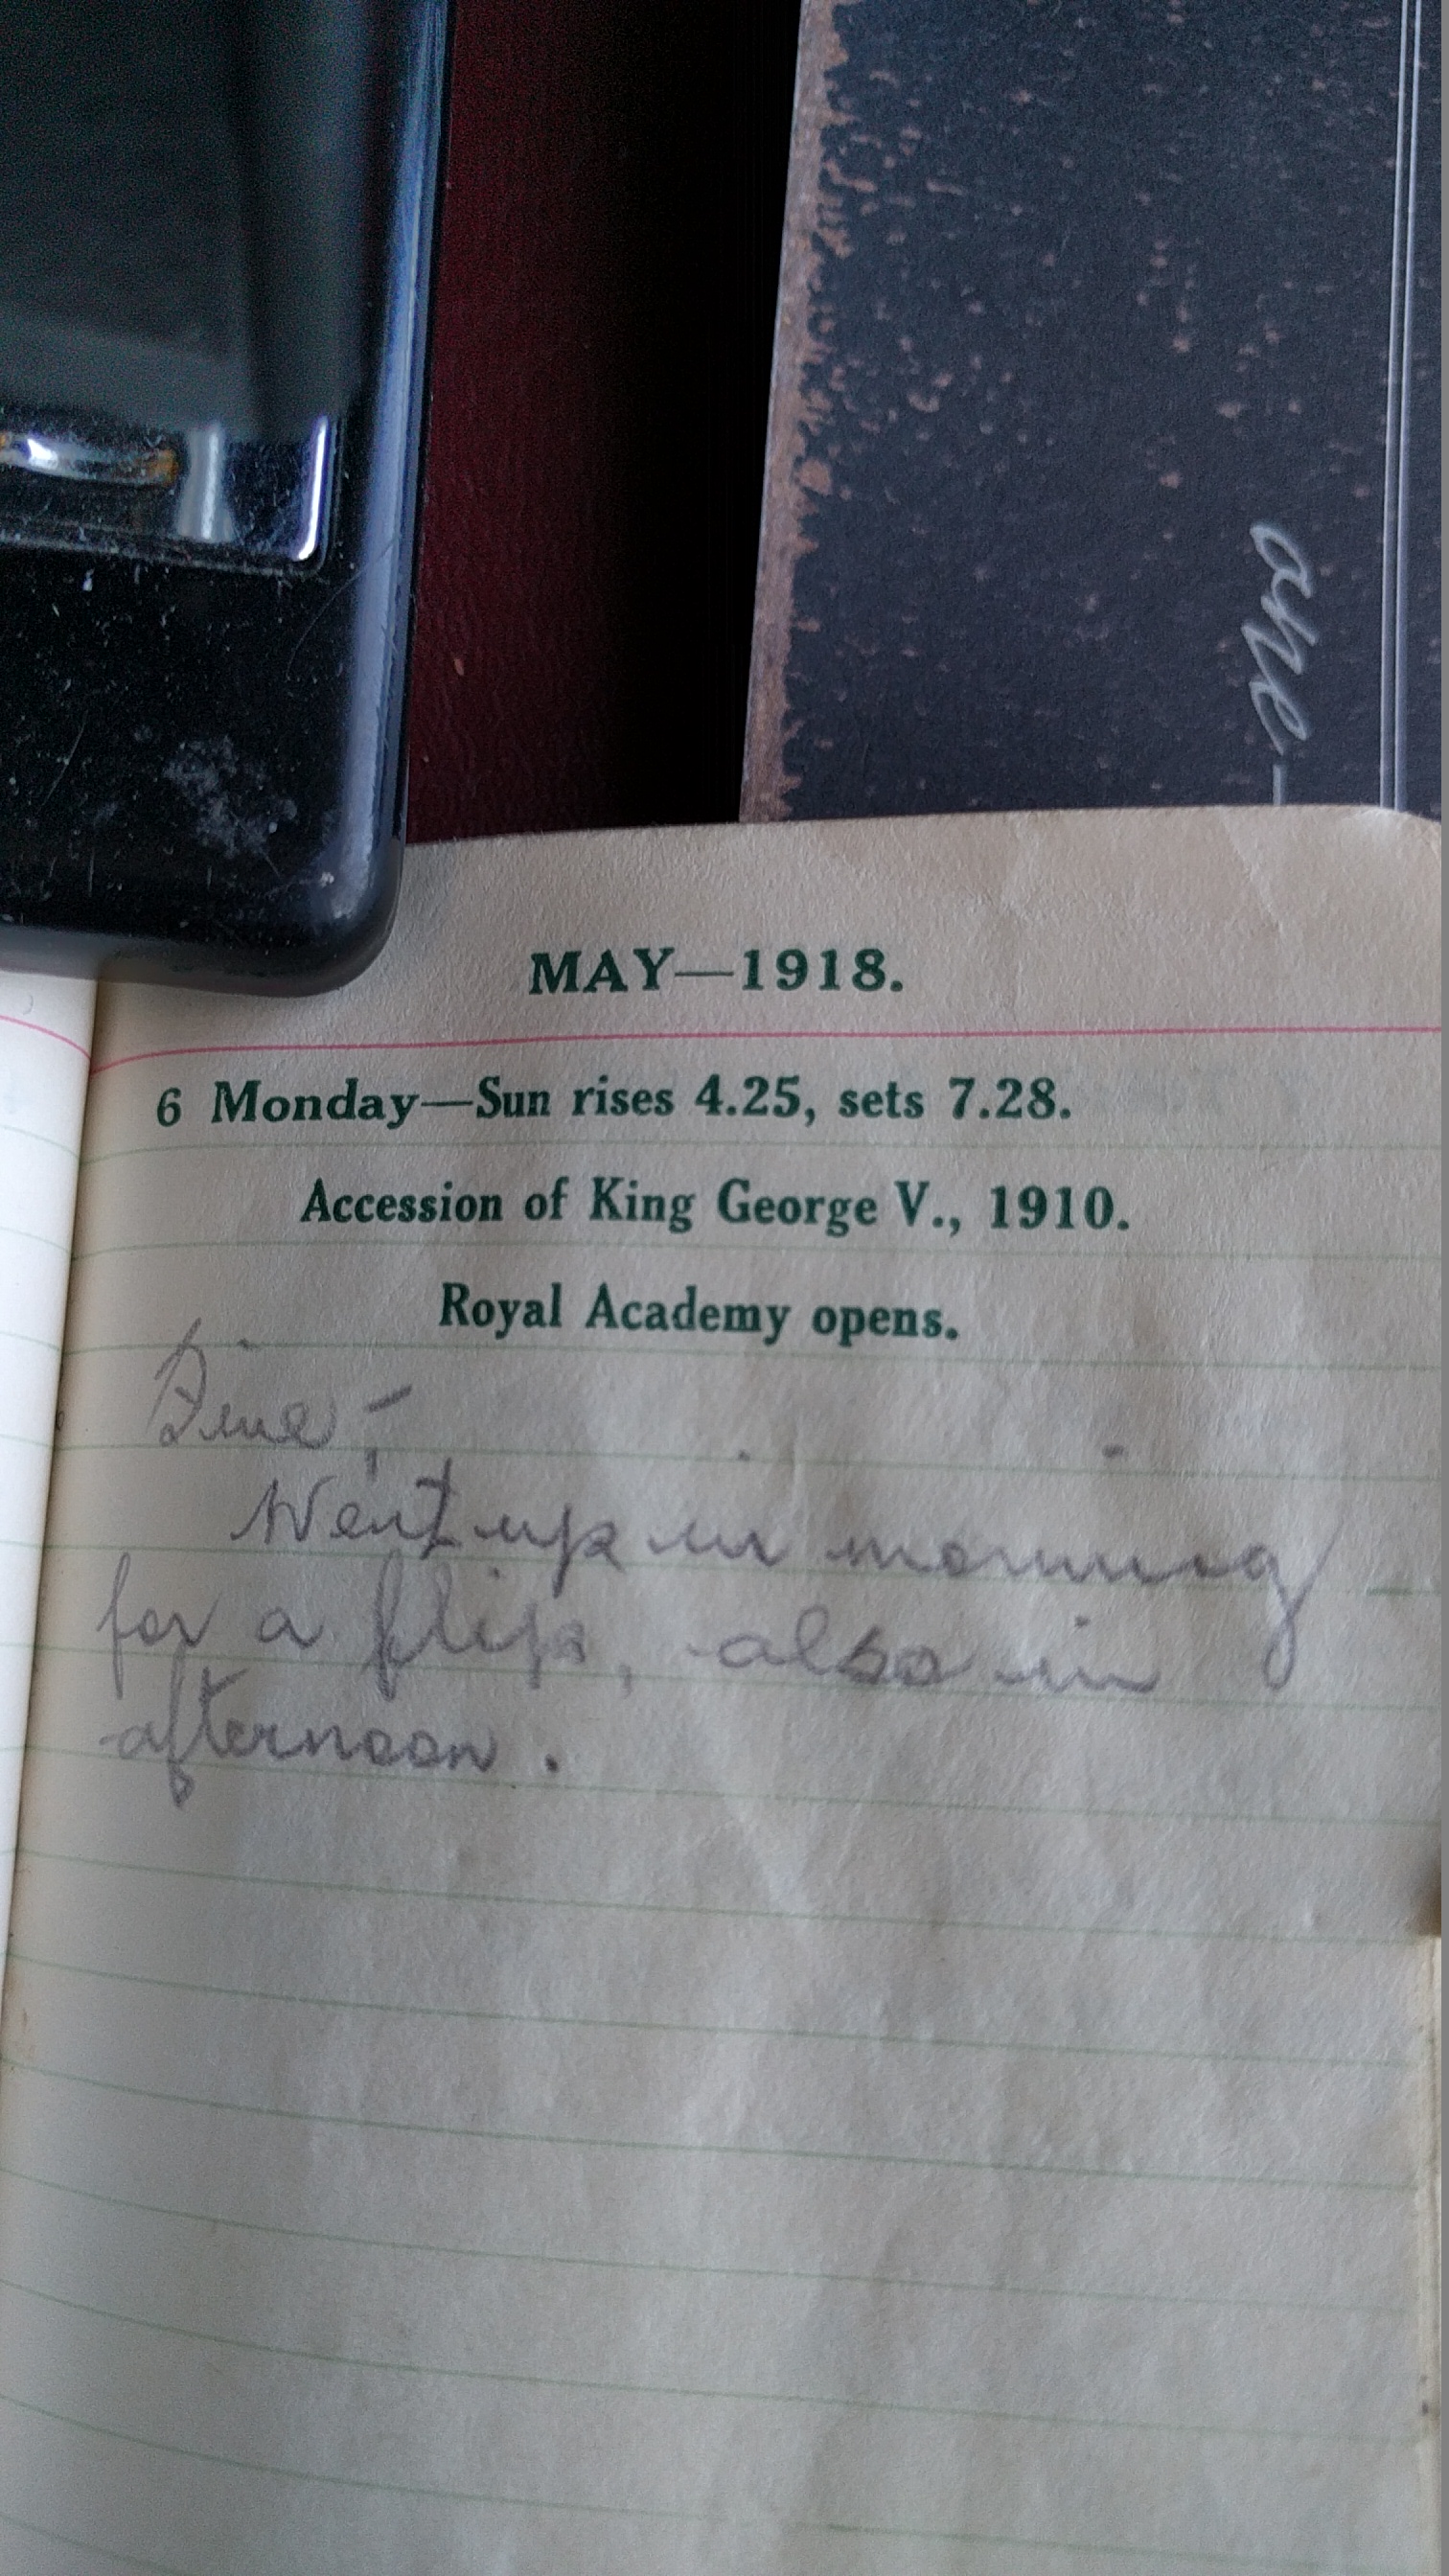 one-
MAY—1918.
6 Monday—Sun rises 4.25, sets 7.28.
Accession of King George V., 1910.
Royal Academy opens.
Fine,-
Went up in morning
for a flip, also in
afternoon.